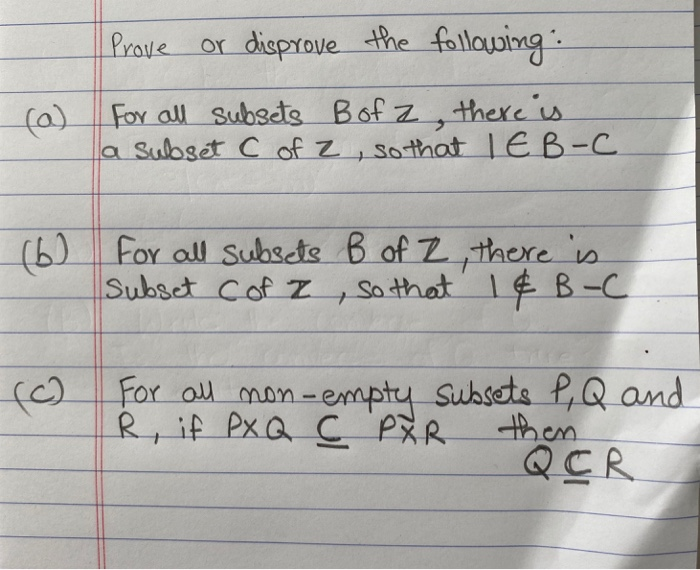 Prove or disprove the following:
(a) For all subsets B of Z, there is
a subset C of Z, so that 1 ∈ B-C
(b) For all subsets B of Z, there is
subset C of Z, so that 1 ∉ B-C
(c) For all non-empty subsets P, Q and
R, if P×Q ⊆ P×R then
Q ⊆ R